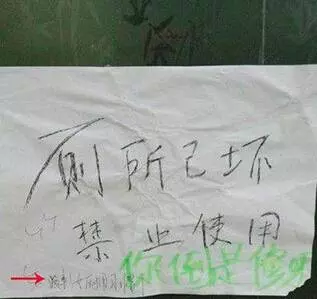 厕所已坏
禁止使用
你还是修吧